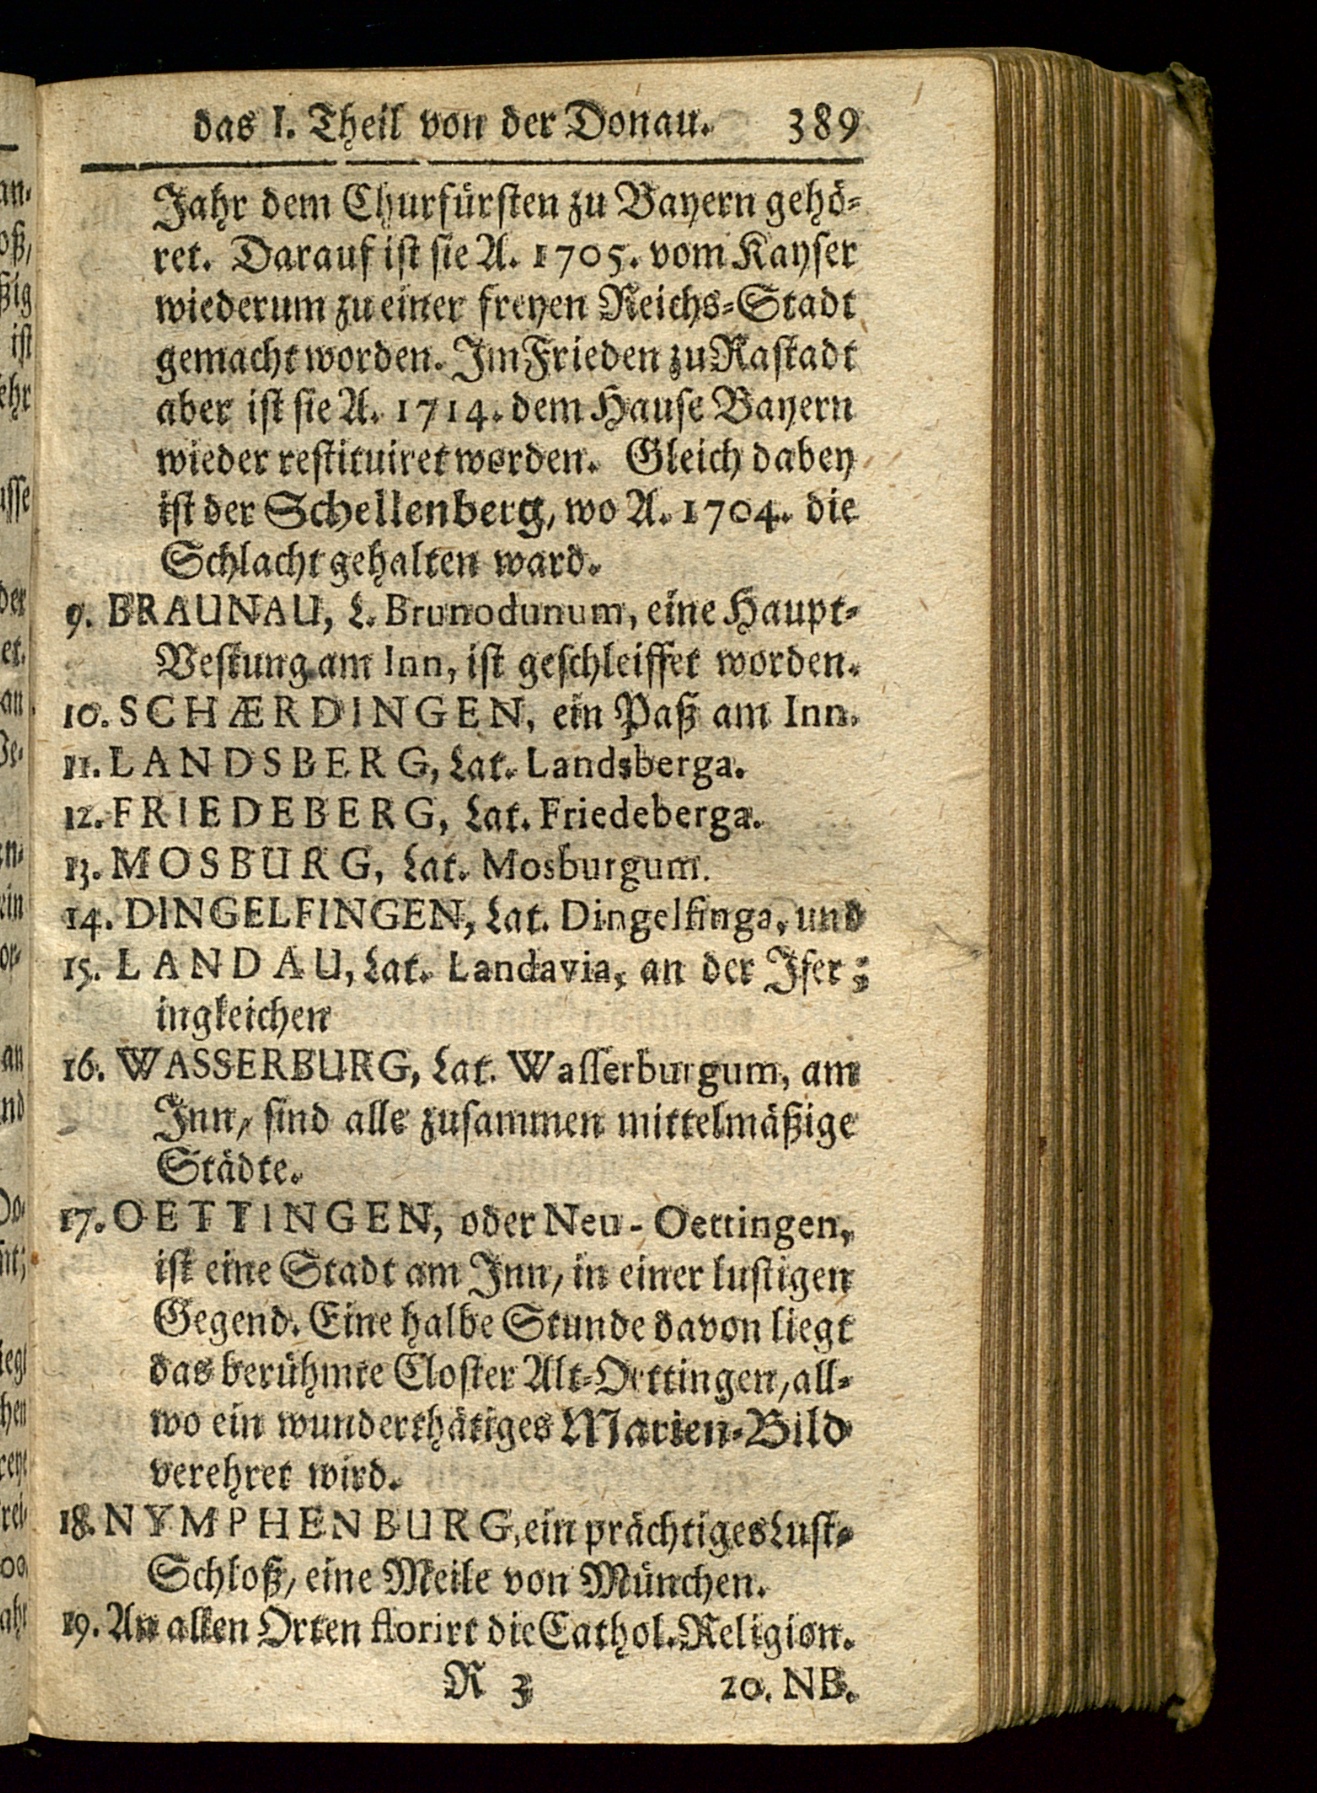 das I. Theil von der Donau. 389
Jahr dem Churfürsten zu Bayern gehö-
ret. Darauf ist sie A. 1705. vom Kayser
wiederum zu einer freyen Reichs-Stadt
gemacht worden. Im Frieden zu Rastadt
aber ist sie A. 1714. dem Hause Bayern
wieder restituiret worden. Gleich dabey
ist der Schellenberg, wo A. 1704. die
Schlacht gehalten ward.
9. BRAUNAU, L. Brunodunum, eine Haupt-
Vestung am Inn, ist geschleiffet worden.
10. SCHÆRDINGEN, ein Paß am Inn.
11. LANDSBERG, Lat. Landsberga.
12. FRIEDEBERG, Lat. Friedeberga.
13. MOSBURG, Lat. Mosburgum.
14. DINGELFINGEN, Lat. Dingelfinga, und
15. LANDAU, Lat. Landavia, an der Iser;
ingleichen
16. WASSERBURG, Lat. Wasserburgum, am
Inn, sind alle zusammen mittelmäßige
Städte.
17. OETTINGEN, oder Neu-Oettingen,
ist eine Stadt am Inn, in einer lustigen
Gegend. Eine halbe Stunde davon liegt
das berühmte Closter Alt-Oettingen, all-
wo ein wunderthätiges Marien-Bild
verehret wird.
18. NYMPHENBURG, ein prächtiges Lust-
Schloß, eine Meile von München.
19. An allen Orten florirt die Cathol. Religion.
R 3 20. NB.